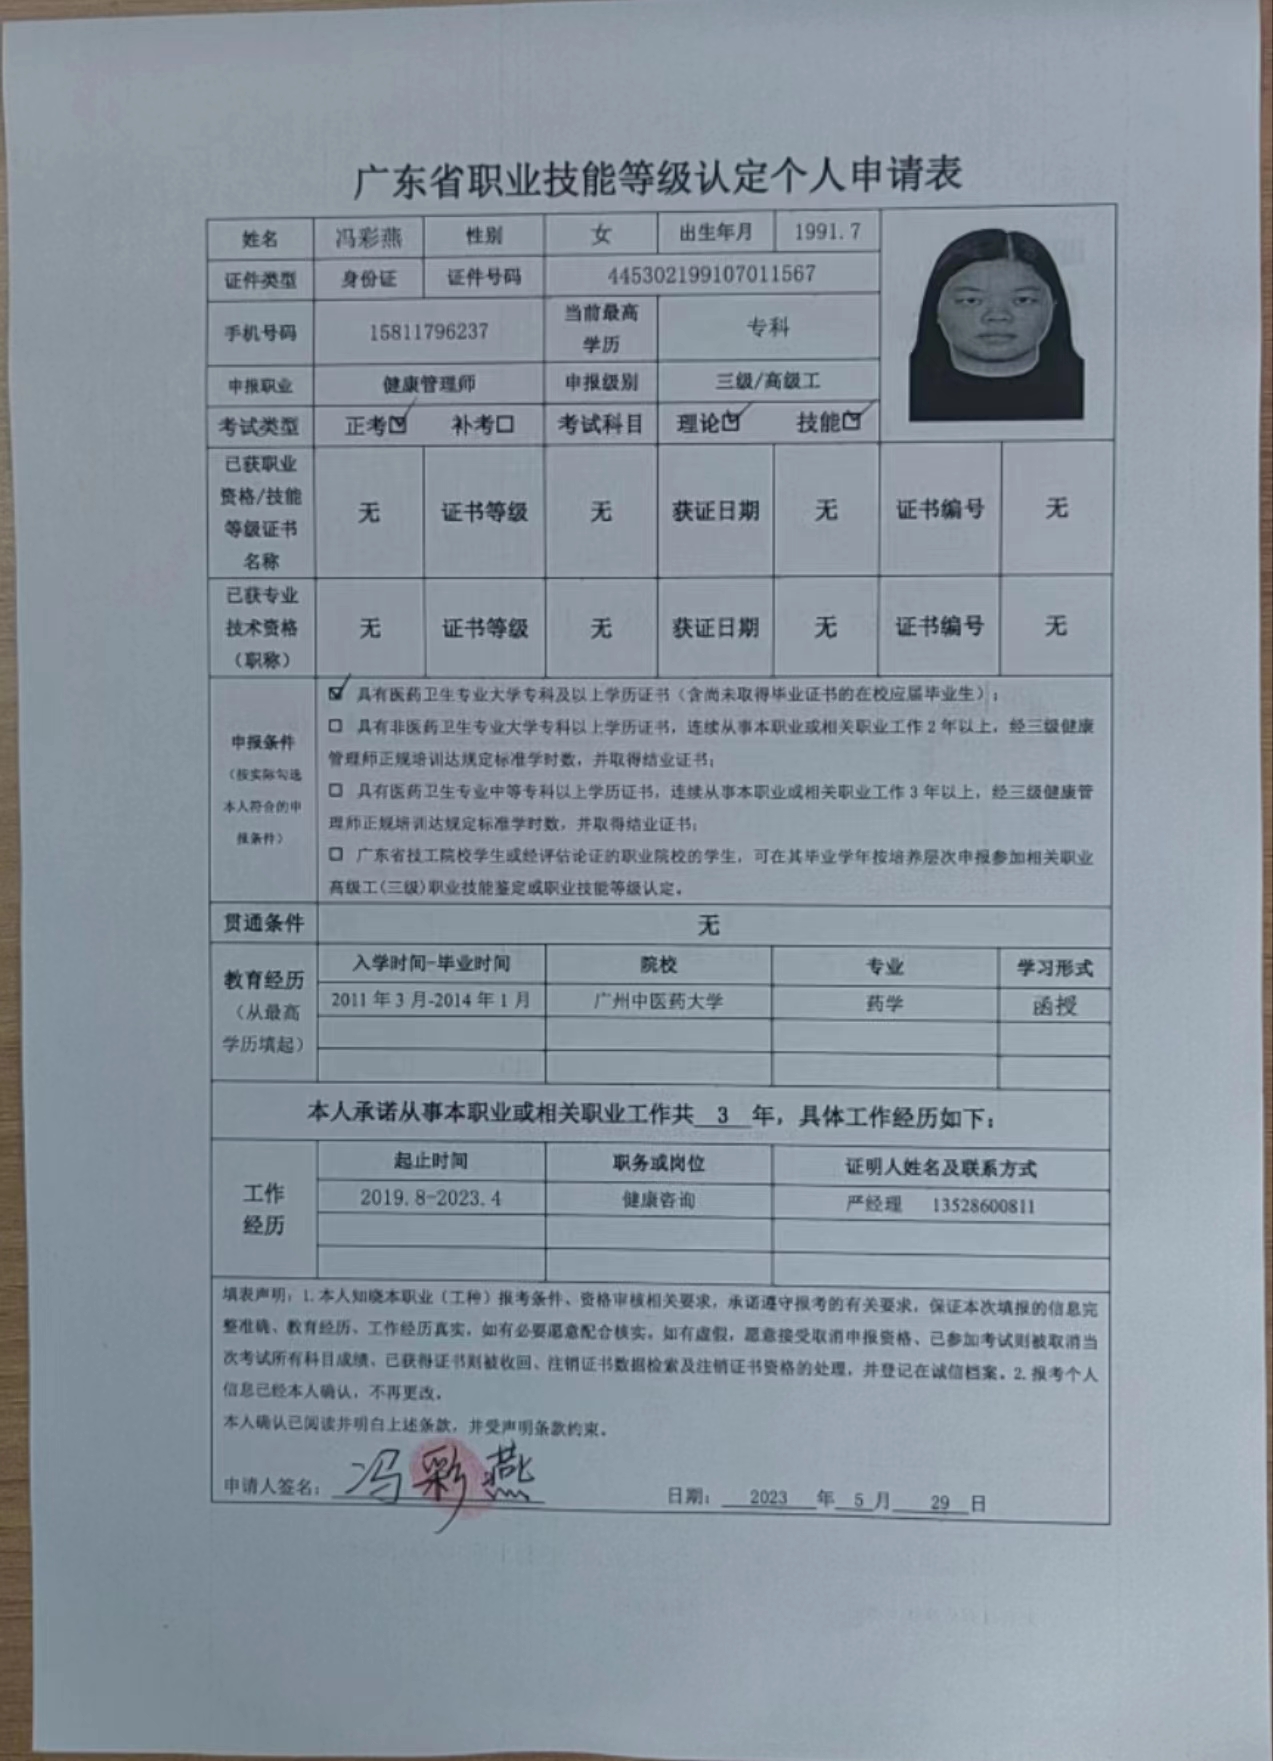 广东省职业技能等级认定个人申请表
姓名 冯彩燕 性别 女 出生年月 1991.7
证件类型 身份证 证件号码 445302199107011567
手机号码 15811796237 当前最高学历 专科
申报职业 健康管理师 申报级别 三级/高级工
考试类型 正考☑ 补考☐ 考试科目 理论☑ 技能☑
已获职业资格/技能等级证书名称 无 证书等级 无 获证日期 无 证书编号 无
已获专业技术资格（职称） 无 证书等级 无 获证日期 无 证书编号 无
申报条件
（按实际勾选本人符合的申报条件）
☑ 具有医药卫生专业大学专科及以上学历证书（含尚未取得毕业证书的在校应届毕业生）；
☐ 具有非医药卫生专业大学专科以上学历证书，连续从事本职业或相关职业工作2年以上，经三级健康
管理师正规培训达规定标准学时数，并取得结业证书；
☐ 具有医药卫生专业中等专科以上学历证书，连续从事本职业或相关职业工作3年以上，经三级健康管
理师正规培训达规定标准学时数，并取得结业证书；
☐ 广东省技工院校学生或经评估论证的职业院校的学生，可在其毕业学年按培养层次申报参加相关职业
高级工(三级)职业技能鉴定或职业技能等级认定。
贯通条件 无
教育经历
（从最高学历填起）
入学时间-毕业时间 院校 专业 学习形式
2011年3月-2014年1月 广州中医药大学 药学 函授
本人承诺从事本职业或相关职业工作共 3 年，具体工作经历如下：
工作经历
起止时间 职务或岗位 证明人姓名及联系方式
2019.8-2023.4 健康咨询 严经理 13528600811
填表声明：1.本人知晓本职业（工种）报考条件、资格审核相关要求，承诺遵守报考的有关要求，保证本次填报的信息完
整准确、教育经历、工作经历真实，如有必要愿意配合核实。如有虚假，愿意接受取消申报资格、已参加考试则被取消当
次考试所有科目成绩、已获得证书则被收回、注销证书数据检索及注销证书资格的处理，并登记在诚信档案。2.报考个人
信息已经本人确认，不再更改。
本人确认已阅读并明白上述条款，并受声明条款约束。
申请人签名： 冯彩燕 日期： 2023 年 5 月 29 日